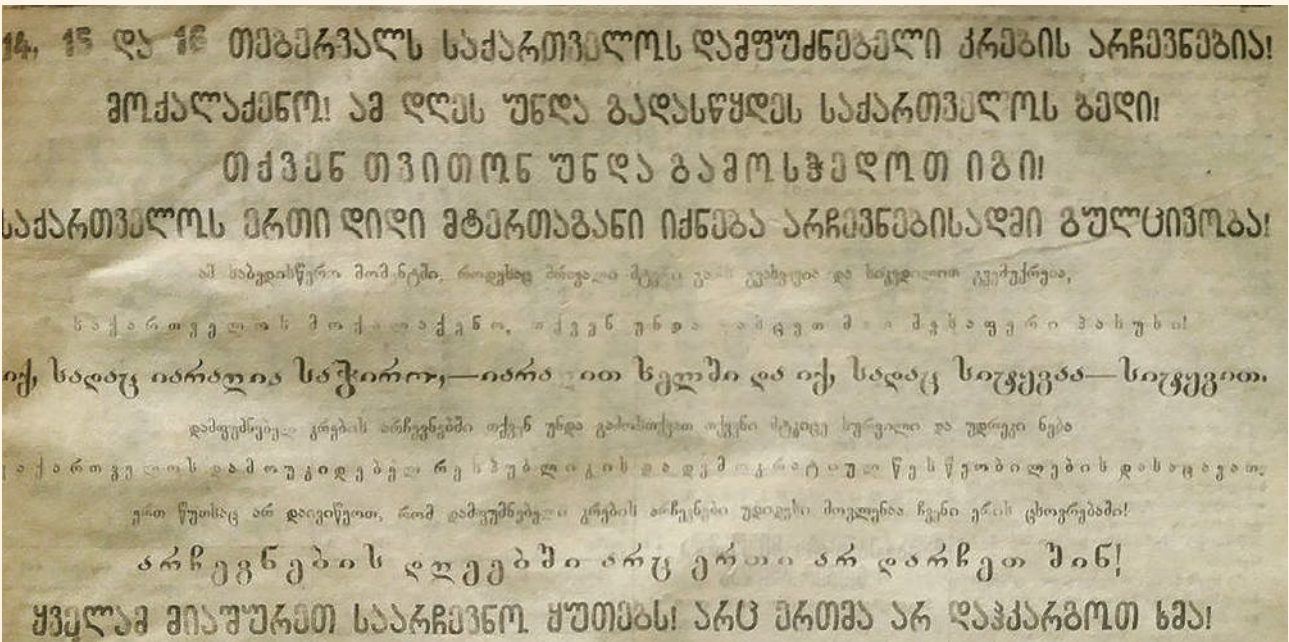 14, 15 და 16 თებერვალს საქართველოს დამფუძნებელი კრების არჩევნებია!
მოქალაქენო! ამ დღეს უნდა გადასწყდეს საქართველოს ბედი!
თქვენ თვითონ უნდა გამოსჭედოთ იგი!
საქართველოს ერთი დიდი მტერთაგანი იქნება არჩევნებისადმი გულცივობა!
ამ საბედისწერო მომენტში, როდესაც მრავალი მტერი გარს გვახვევია და სიკვდილით გვემუქრება,
საქართველოს მოქალაქენო, თქვენ უნდა გასცეთ მათ შესაფერი პასუხი!
იქ, სადაც იარაღია საჭირო,—იარაღით ხელში და იქ, სადაც სიტყვაა—სიტყვით.
დამფუძნებელ კრების არჩევნებში თქვენ უნდა გამოსთქვათ თქვენი მტკიცე სურვილი და უდრეკი ნება
საქართველოს დამოუკიდებელ რესპუბლიკის და დემოკრატიულ წესწყობილების დასაცავათ.
ერთ წუთსაც არ დაივიწყოთ, რომ დამფუძნებელი კრების არჩევნები უდიდესი მოვლენაა ჩვენი ერის ცხოვრებაში!
არჩევნების დღეებში არც ერთი არ დარჩეთ შინ!
ყველამ მიაშურეთ საარჩევნო ყუთებს! არც ერთმა არ დაჰკარგოთ ხმა!